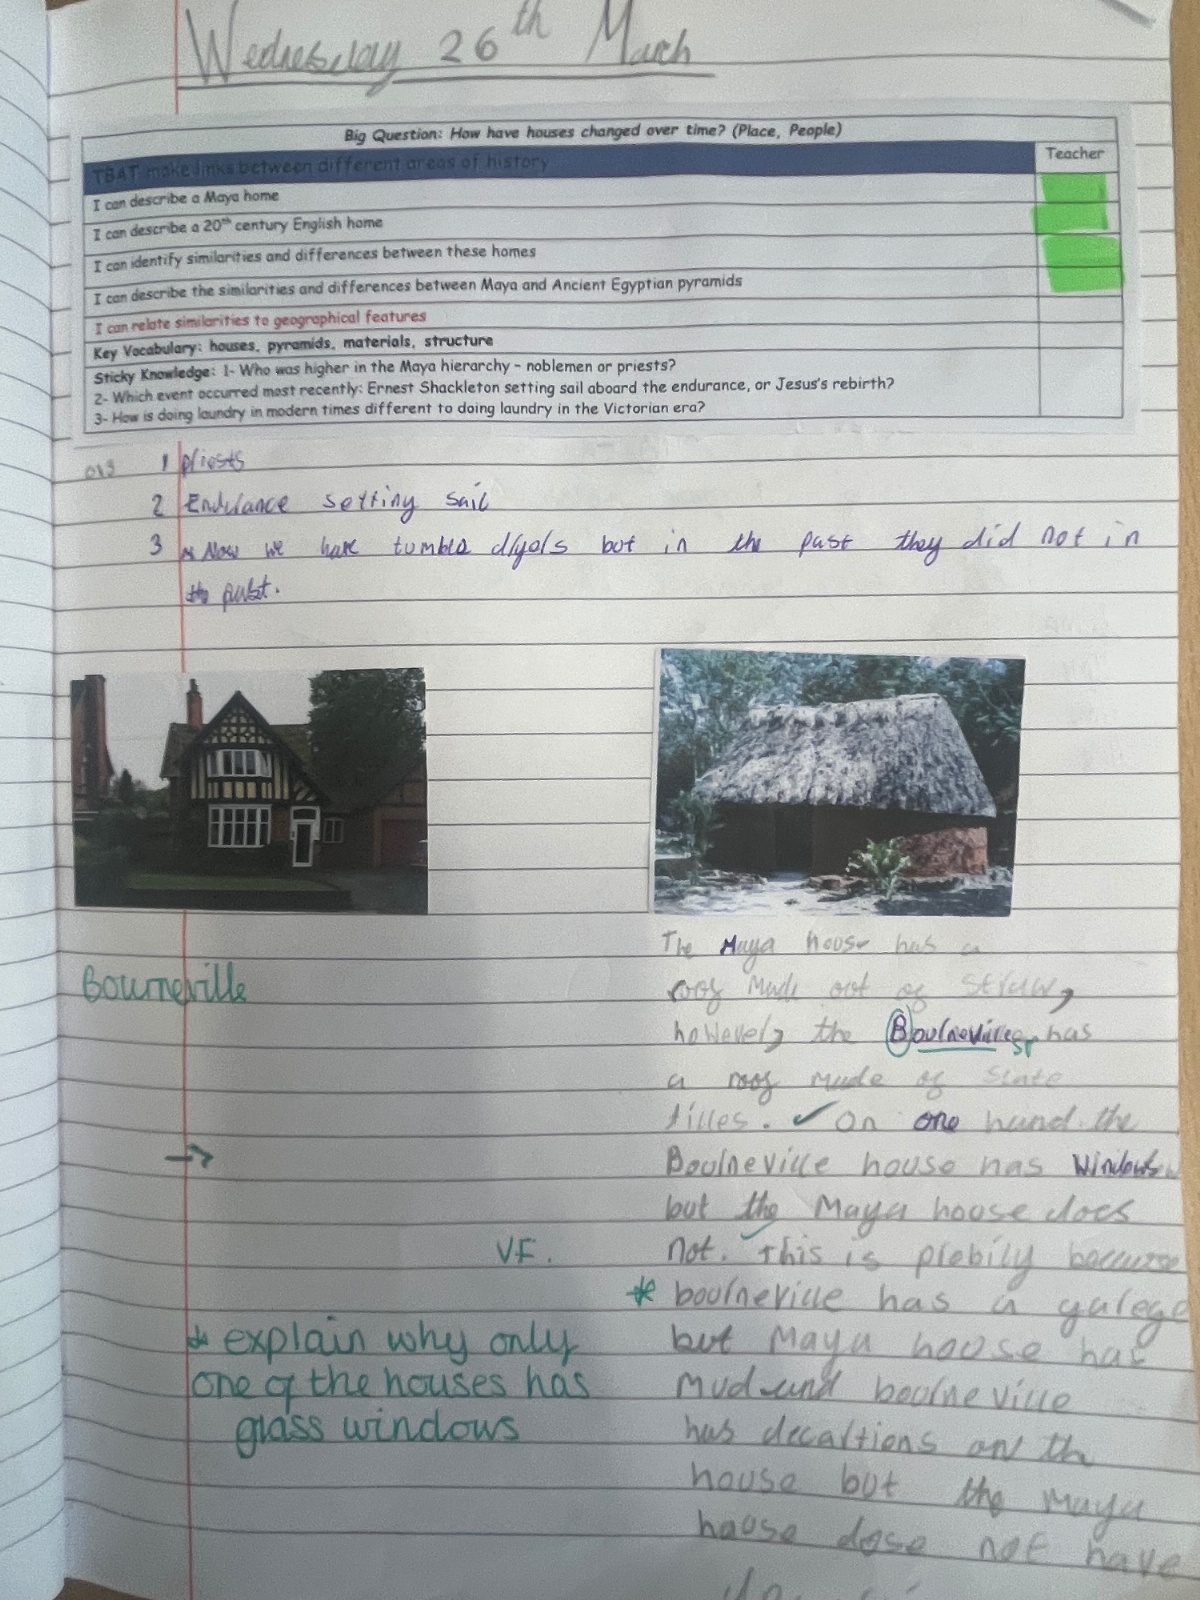 Wednesday 26th March
Big Question: How have houses changed over time? (Place, People)
TBAT make links between different areas of history
Teacher
I can describe a Maya home
I can describe a 20th century English home
I can identify similarities and differences between these homes
I can describe the similarities and differences between Maya and Ancient Egyptian pyramids
I can relate similarities to geographical features
Key Vocabulary: houses, pyramids, materials, structure
Sticky Knowledge: 1- Who was higher in the Maya hierarchy – noblemen or priests?
2- Which event occurred most recently: Ernest Shackleton setting sail aboard the endurance, or Jesus's rebirth?
3- How is doing laundry in modern times different to doing laundry in the Victorian era?
1 priests
2 Endurance setting sail
3 Now we have tumble but in the past they did not in
the past.
Bourneville
The Maya house has a
roof made out of straw,
however, the has
a roof made of slate
tilles. ✓ On one hand the
Bourneville house has windows
but the Maya house does
not. This is probily because
* bourneville has a
but Maya house has
mud and bourneville
has on th
house but the Maya
house dose not have
VF.
* explain why only
one of the houses has
glass windows